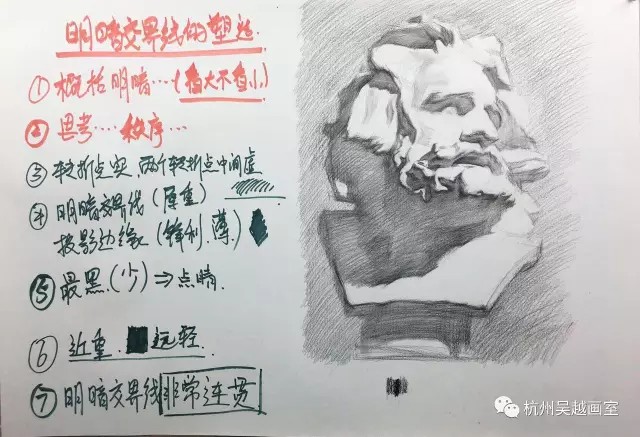 明暗交界线的塑造.
① 概括明暗…(看大不看小)
② 思考… 秩序…
③ 转折点实,两个转折点中间虚
④ 明暗交界线(厚重)
投影边缘(锋利.薄.)
⑤ 最黑.(少)⇒点睛.
⑥ 近重. 远轻.
⑦ 明暗交界线非常连贯
杭州吴越画室